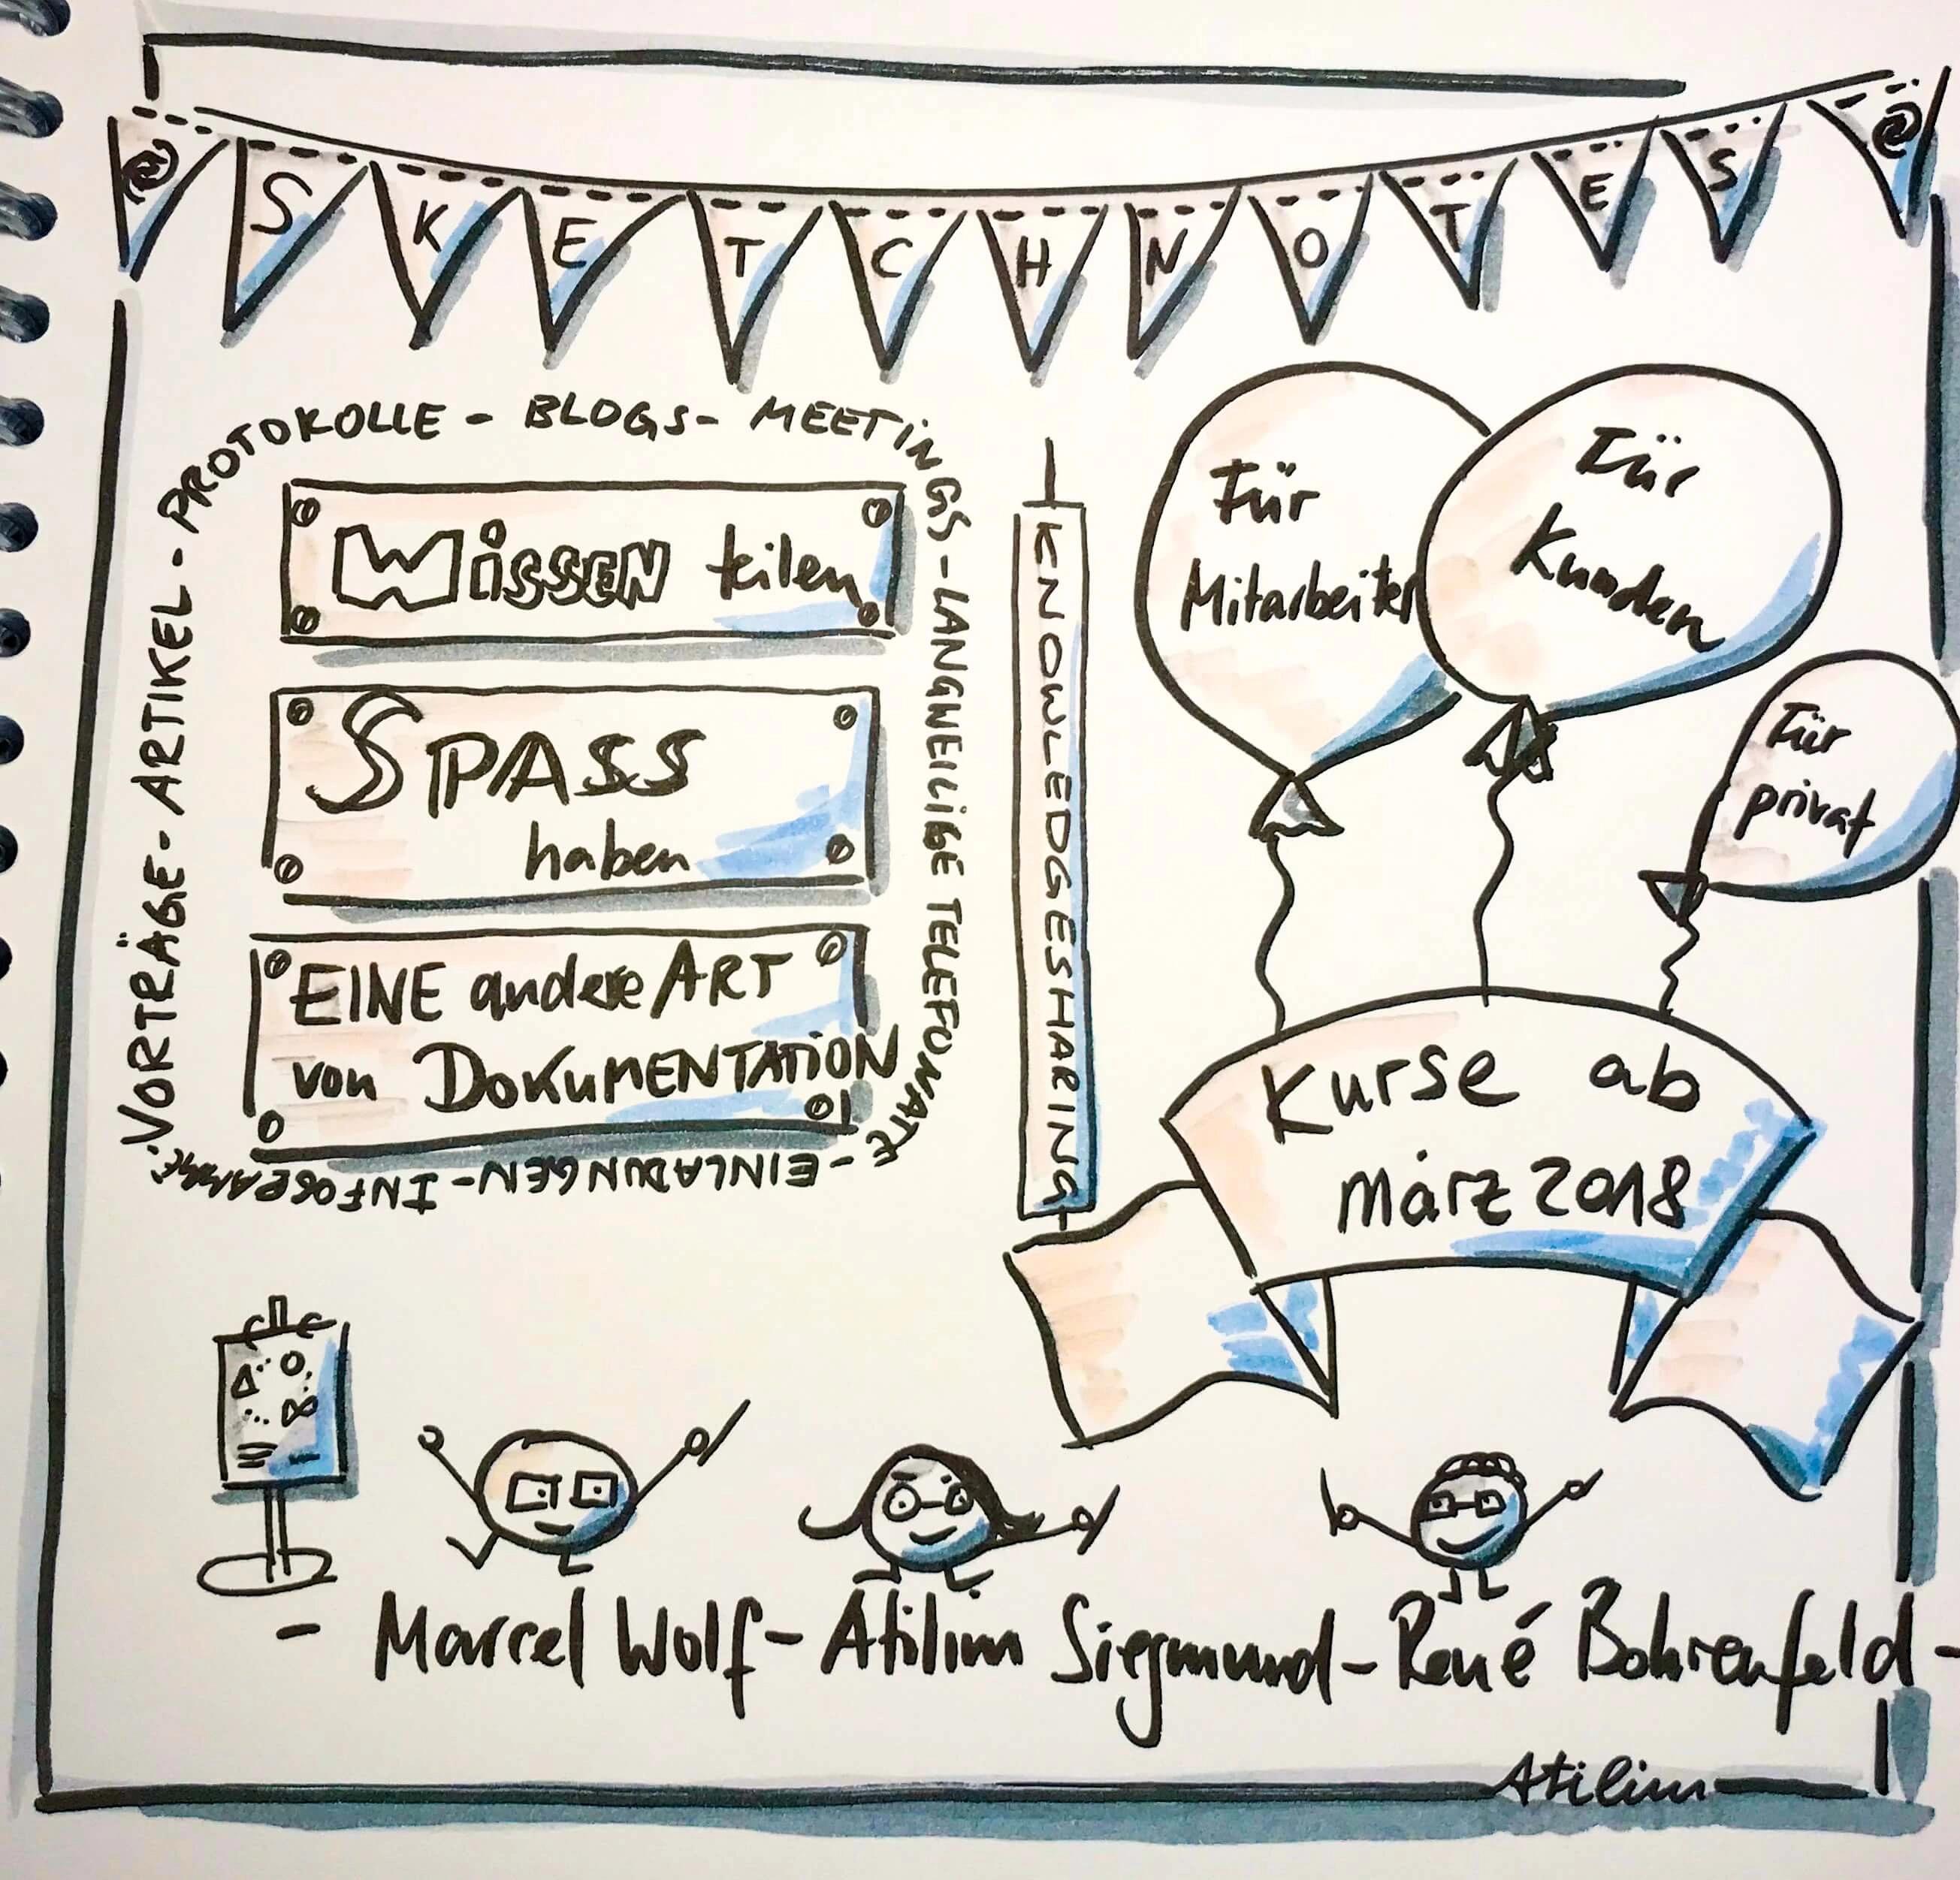 @ SKETCHNOTES @
VORTRÄGE - ARTIKEL - PROTOKOLLE - BLOGS - MEETINGS - LANGWEILIGE TELEFONATE - EINLADUNGEN - INFOGRAMME.
WiSSEN teilen
SPASS
haben
EINE andere ART
von DOKUMENTATiON
KNOWLEDGESHARING
Für
Mitarbeiter
Für
Kunden
Für
privat
Kurse ab
März 2018
- Marcel Wolf - Atilim Siegmund - René Bohrenfeld -
Atilim